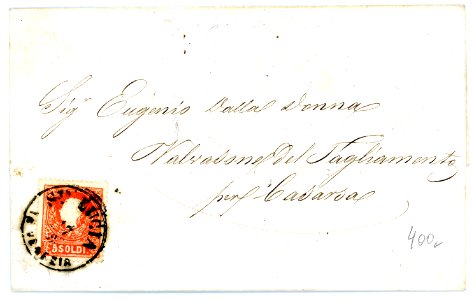 Sigr Eugenio Dalla Donna
Valvasone del Tagliamento
per Casarsa
LUCIA
VENEZIA
5 SOLDI
400